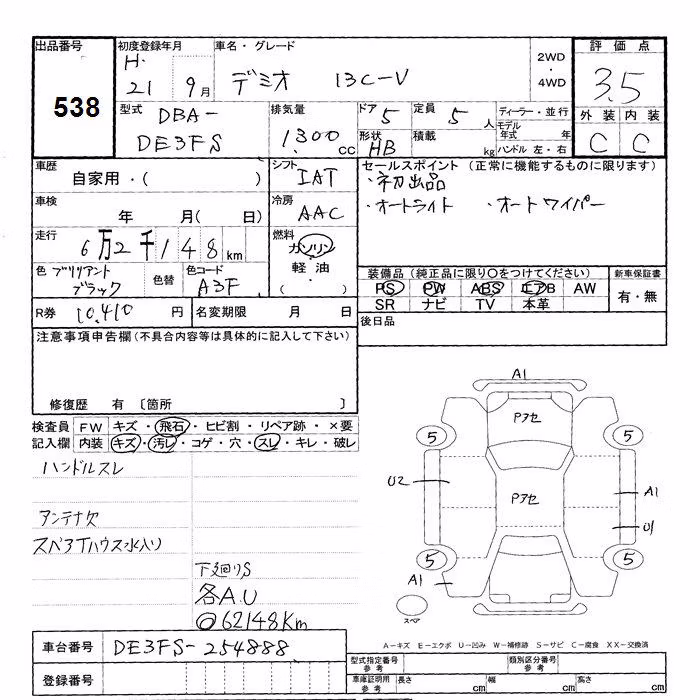 出品番号
538
初度登録年月
H. 21 9月
車名・グレード
デミオ 13C-V
2WD
・
4WD
評価点
3.5
外装 内装
C C
型式
DBA-
DE3FS
排気量
1.300 cc
ドア 5
定員 5 人
形状 HB
積載 kg
ディーラー・並行
モデル年式 年
ハンドル 左・右
車歴
自家用・( )
シフト
IAT
セールスポイント (正常に機能するものに限ります)
・初出品
・オートライト ・オートワイパー
車検
年 月( 日)
冷房
AAC
走行
6万2千148km
燃料
ガソリン
軽油
( )
色 ブリリアント
ブラック
色替
色コード
A3F
装備品 (純正品に限り〇をつけてください)
PS PW ABS エアB AW
SR ナビ TV 本革
新車保証書
有・無
R券 10,410 円
名変期限 月 日
後日品
注意事項申告欄(不具合内容等は具体的に記入して下さい)
修復歴 有 〔箇所 〕
検査員
記入欄
FW キズ・飛石・ヒビ割・リペア跡・×要
内装 キズ・汚レ・コゲ・穴・スレ・キレ・破レ
ハンドルスレ
アンテナ欠
スペアTハウス水入り
下廻りS
各A.U
◎62148Km
A1
Pアセ
5 5
U2
Pアセ
A1
U1
5 5
A1
スペア
A-キズ E-エクボ U-凹み W-補修跡 S-サビ C-腐食 XX-交換済
車台番号 DE3FS-254888
登録番号
型式指定番号
参考
類別区分番号
参考
車庫証明用
参考
長さ cm
幅 cm
高さ cm